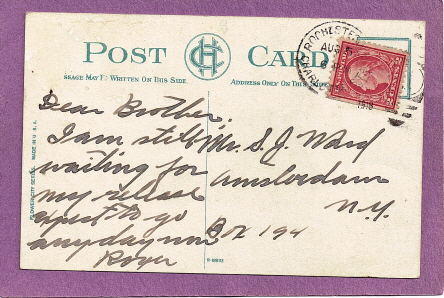 POST CARD
SSAGE MAY BE WRITTEN ON THIS SIDE
ADDRESS ONLY ON THIS
ROCHESTER
AUG
1919
Dear Brother.
I am still
waiting for
my release
expect to go
any day now
Roger
Mr. S. J. Ward
Amsterdam
N.Y.
Box 194
MADE IN U.S.A.